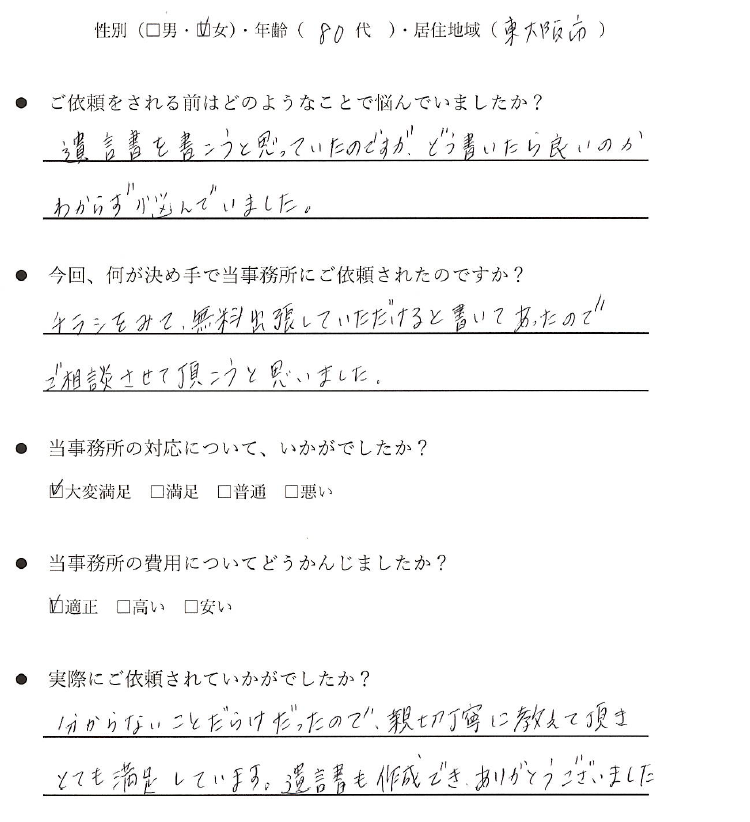 性別（□男・☑女）・年齢（ 80 代 ）・居住地域（ 東大阪市 ）
● ご依頼をされる前はどのようなことで悩んでいましたか？
遺言書を書こうと思っていたのですが、どう書いたら良いのか
わからずが悩んでいました。
● 今回、何が決め手で当事務所にご依頼されたのですか？
チラシをみて、無料出張していただけると書いてあったので
ご相談させて頂こうと思いました。
● 当事務所の対応について、いかがでしたか？
☑大変満足 □満足 □普通 □悪い
● 当事務所の費用についてどうかんじましたか？
☑適正 □高い □安い
● 実際にご依頼されていかがでしたか？
分からないことだらけだったので、親切丁寧に教えて頂き
とても満足しています。遺言書も作成でき、ありがとうございました